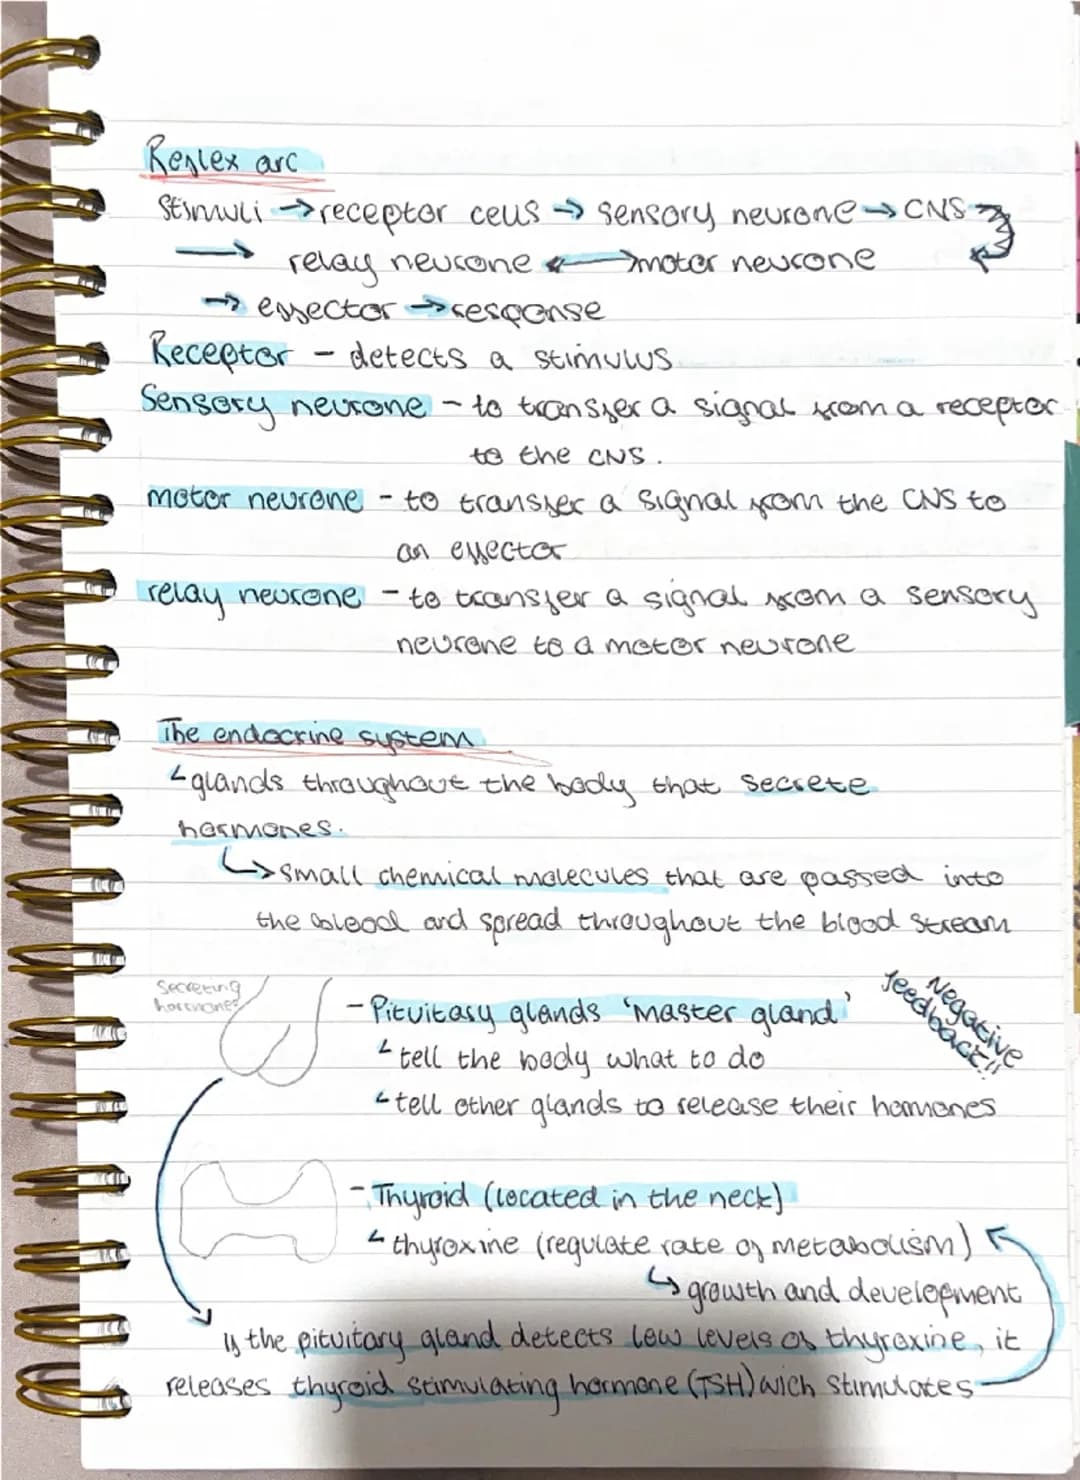 Reflex arc
Stimuli → receptor cells → sensory neurone → CNS
→ relay neurone ←→ motor neurone
→ effector → response
Receptor - detects a stimulus
Sensory neurone - to transfer a signal from a receptor
to the CNS.
motor neurone - to transfer a signal from the CNS to
an effector
relay neurone - to transfer a signal from a sensory
neurone to a motor neurone
The endocrine system
↳ glands throughout the body that secrete
hormones.
↳ small chemical molecules that are passed into
the blood and spread throughout the blood stream
Secreting
hormones
- Pituitary glands 'master gland'
↳ tell the body what to do
↳ tell other glands to release their hormones
Negative
feedback!!
- Thyroid (located in the neck)
↳ thyroxine (regulate rate of metabolism)
↳ growth and development
If the pituitary gland detects low levels of thyroxine, it
releases thyroid stimulating hormone (TSH) wich stimulates